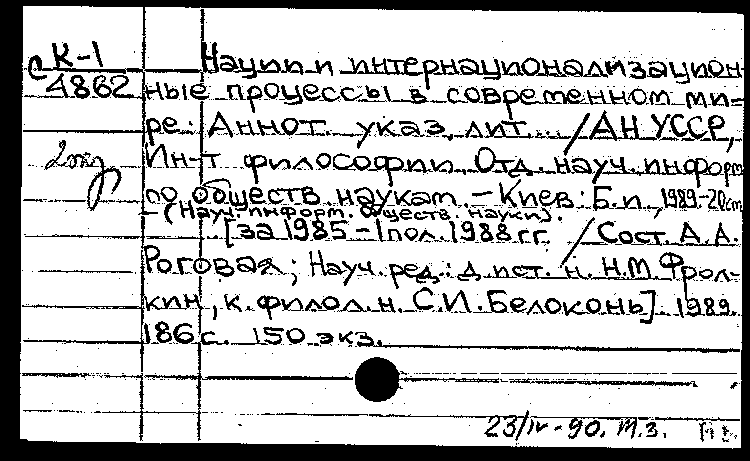 С К-1
4862
2 экз
Нации и интернационализацион-
ные процессы в современном ми-
ре: Аннот. указ. лит... /АН УССР,
Ин-т философии. Отд. науч. информ
по обществ. наукам. – Киев: Б.и., 1989-20см
– (Науч. информ. обществ. науки).
[за 1985–1 пол. 1988 гг. /Сост. А.А.
Роговая; Науч. ред.: д. ист. н. Н.М. Фрол-
кин, к. филол. н. С.И. Белоконь]. 1989.
186 с. 150 экз.
23/IV-90. М.З.